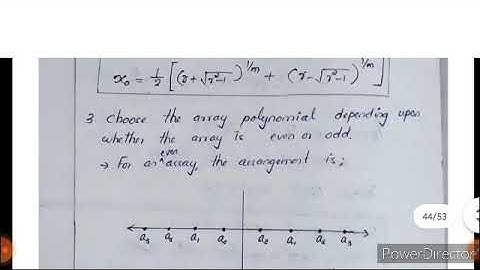 x₀ = 1/2 [(r + √r²-1)^1/m + (r - √r²-1)^1/m]
3 choose the array polynomial depending upon
whether the array is even or odd.
→ For an ^even array, the arrangement is;
a₃ a₂ a₁ a₀ a₀ a₁ a₂ a₃
44/53
PowerDirector